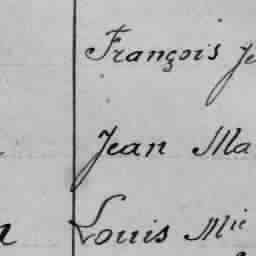 François Je
Jean Ma
Louis Mic